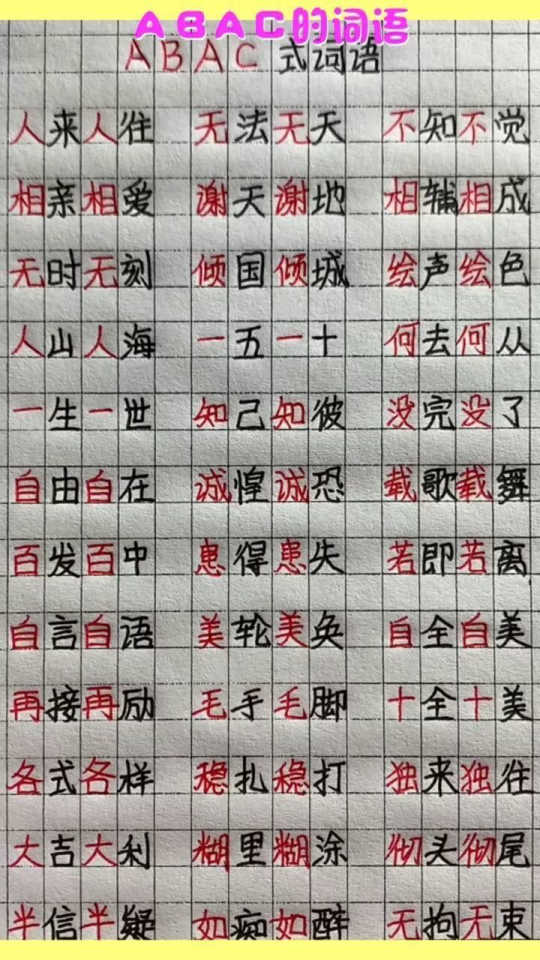 ABAC的词语
ABAC式词语
人来人往 无法无天 不知不觉
相亲相爱 谢天谢地 相辅相成
无时无刻 倾国倾城 绘声绘色
人山人海 一五一十 何去何从
一生一世 知己知彼 没完没了
自由自在 诚惶诚恐 载歌载舞
百发百中 患得患失 若即若离
自言自语 美轮美奂 自全自美
再接再励 毛手毛脚 十全十美
各式各样 稳扎稳打 独来独往
大吉大利 糊里糊涂 彻头彻尾
半信半疑 如痴如醉 无拘无束